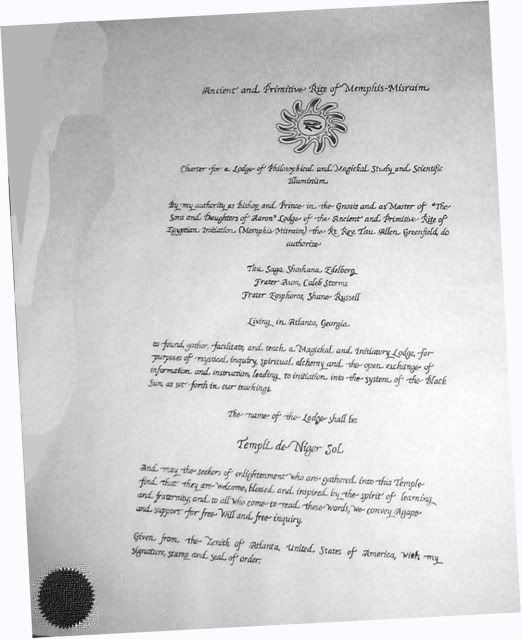 Ancient and Primitive Rite of Memphis-Misraim
Charter for a Lodge of Philosophical and Magickal Study and Scientific
Illuminism
By my authority as Bishop and Prince in the Gnosis and as Master of "The
Sons and Daughters of Aaron" Lodge of the Ancient and Primitive Rite of
Egyptian Initiation (Memphis-Misraim) the Rt. Rev. Tau Allen Greenfield, do
authorize
Tau Saga Shoshana Edelberg
Frater Aum, Caleb Storms
Frater Eosphoros, Shane Russell
Living in Atlanta, Georgia
to found, gather, facilitate, and teach a Magickal and Initiatory Lodge, for
purposes of mystical inquiry, spiritual alchemy and the open exchange of
information and instruction, leading to initiation into the system of the Black
Sun, as set forth in our teachings.
The name of the Lodge shall be:
Templi de Niger Sol
And may the seekers of enlightenment who are gathered into this Temple
find that they are welcome, blessed and inspired by the spirit of learning
and fraternity, and to all who come to read these words, we convey Agape
and support for free Will and free inquiry.
Given from the Zenith of Atlanta, United States of America, with my
signature, stamp and seal of order.